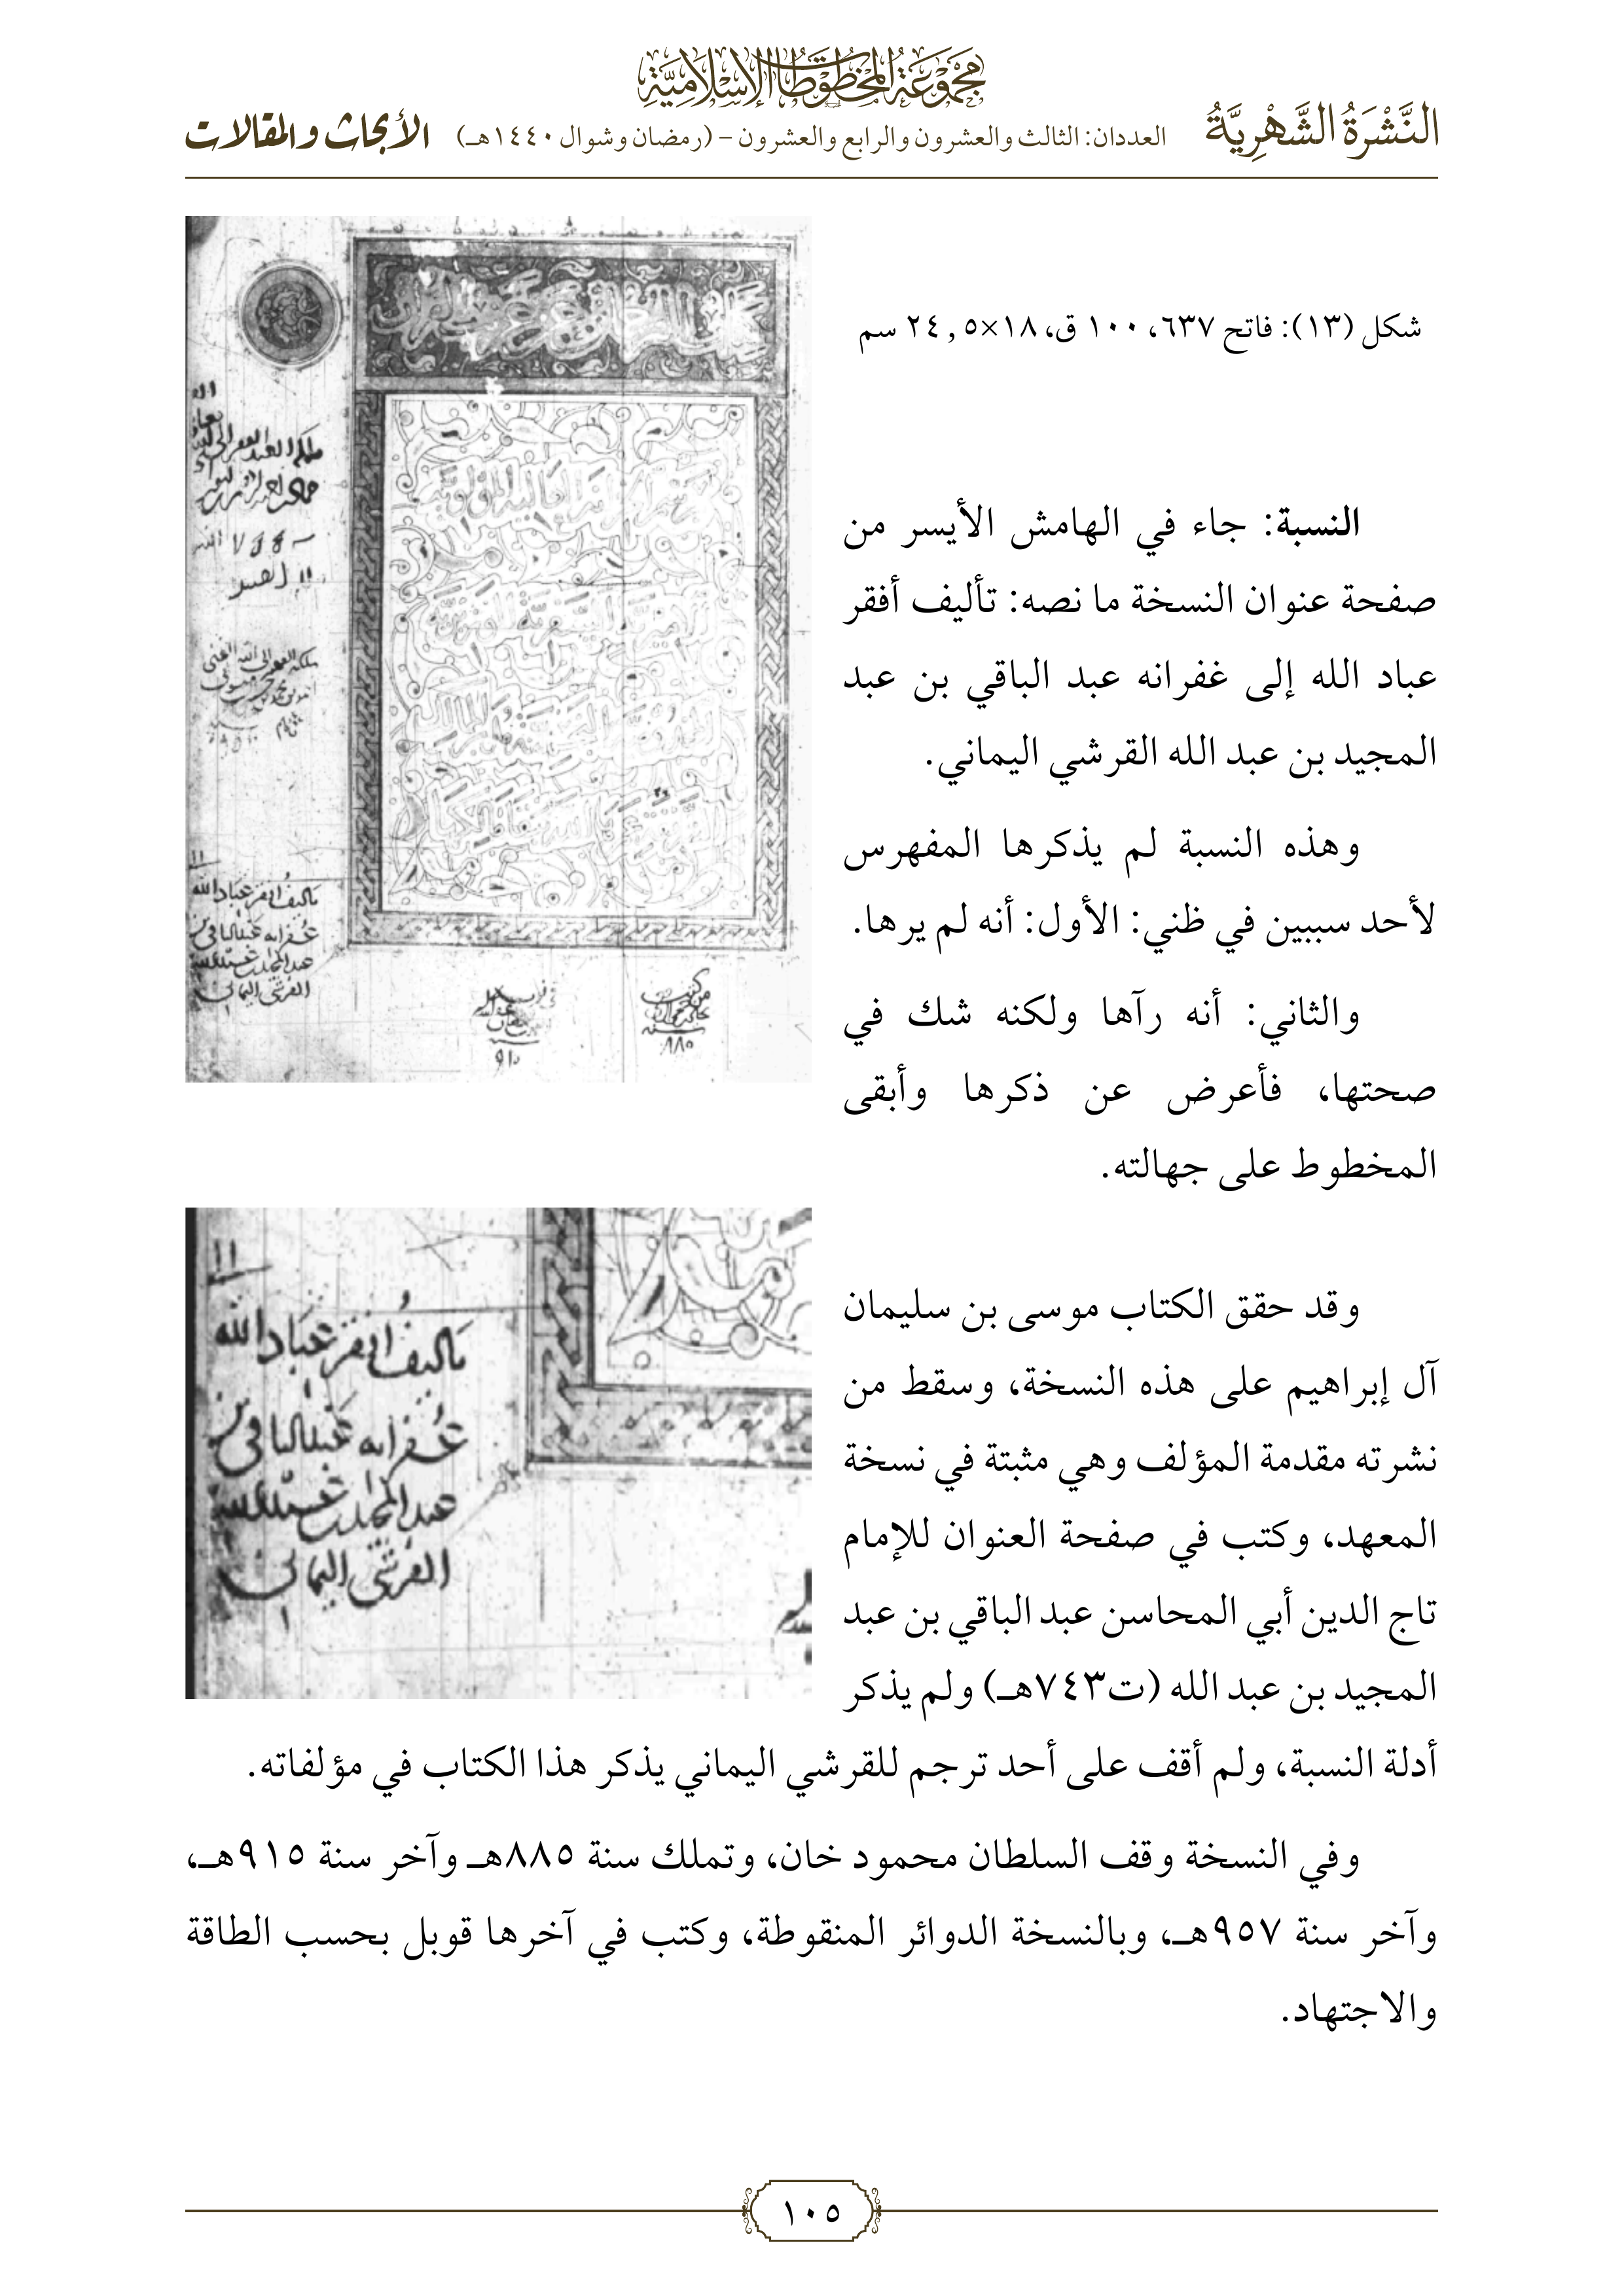 مجموعة المخطوطات الإسلامية
النَّشْرَةُ الشَّهْرِيَّةُ
العددان: الثالث والعشرون والرابع والعشرون – (رمضان وشوال ١٤٤٠هـ)
الأبحاث والمقالات
شكل (١٣): فاتح ٦٣٧، ١٠٠ ق، ١٨×٢٤,٥ سم
النسبة: جاء في الهامش الأيسر من
صفحة عنوان النسخة ما نصه: تأليف أفقر
عباد الله إلى غفرانه عبد الباقي بن عبد
المجيد بن عبد الله القرشي اليماني.
وهذه النسبة لم يذكرها المفهرس
لأحد سببين في ظني: الأول: أنه لم يرها.
والثاني: أنه رآها ولكنه شك في
صحتها، فأعرض عن ذكرها وأبقى
المخطوط على جهالته.
تأليف أفقر عباد الله
غفرانه عبد الباقي بن
عبد المجيد بن عبد الله
القرشي اليماني
وقد حقق الكتاب موسى بن سليمان
آل إبراهيم على هذه النسخة، وسقط من
نشرته مقدمة المؤلف وهي مثبتة في نسخة
المعهد، وكتب في صفحة العنوان للإمام
تاج الدين أبي المحاسن عبد الباقي بن عبد
المجيد بن عبد الله (ت٧٤٣هـ) ولم يذكر
أدلة النسبة، ولم أقف على أحد ترجم للقرشي اليماني يذكر هذا الكتاب في مؤلفاته.
وفي النسخة وقف السلطان محمود خان، وتملك سنة ٨٨٥هـ وآخر سنة ٩١٥هـ،
وآخر سنة ٩٥٧هـ، وبالنسخة الدوائر المنقوطة، وكتب في آخرها قوبل بحسب الطاقة
والاجتهاد.
١٠٥